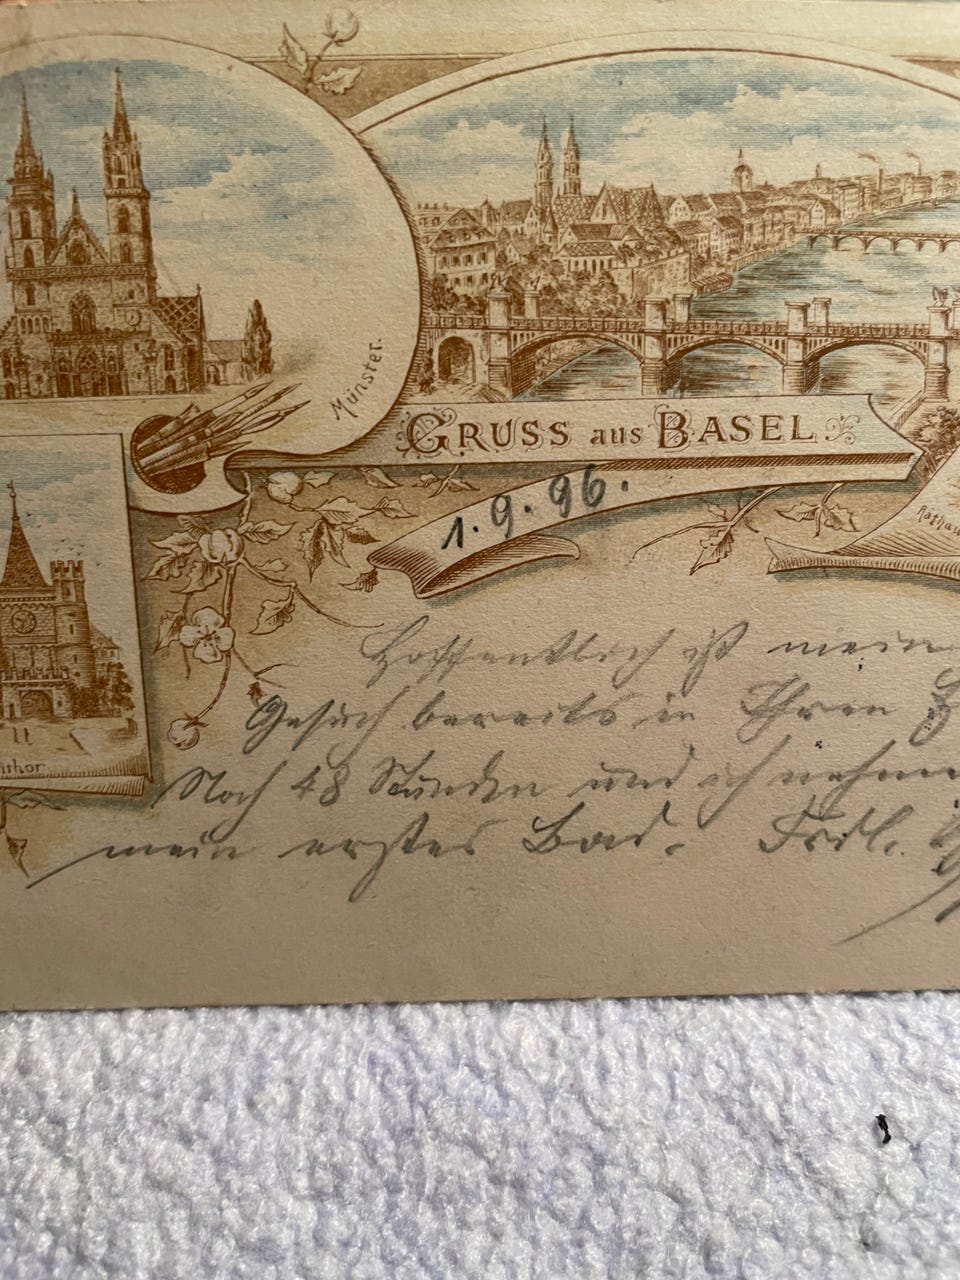 Münster.
GRUSS AUS BASEL
1.9.96.
Rathau
thor.
Hoffentlich ist mein
Gesuch bereits in Ihren
Noch 48 Stunden und ich nehme
mein erstes Bad.